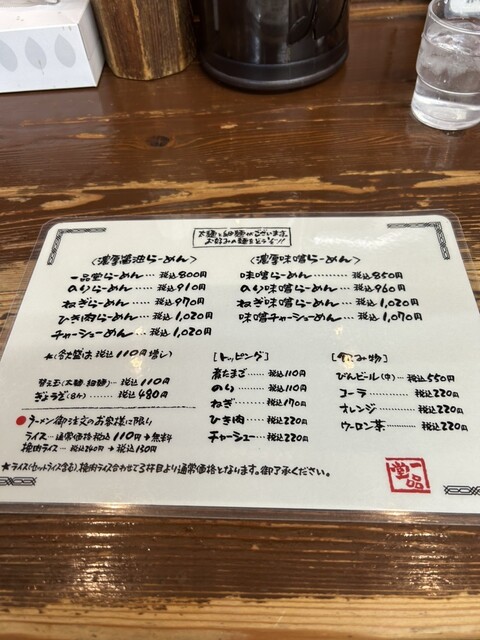 太麺と細麺がございます。
お好みの麺をどうぞ!!
〈濃厚醤油らーめん〉
一品堂らーめん‥‥ 税込800円
のりらーめん‥‥‥ 税込910円
ねぎらーめん‥‥‥ 税込970円
ひき肉らーめん‥‥ 税込1,020円
チャーシューめん‥‥ 税込1,020円
★(合盛は 税込110円増し)
替え玉(太麺・細麺)‥‥税込110円
ぎょうざ(5ケ)‥‥‥‥税込480円
●ラーメン御注文のお客様に限り
ライス‥通常価格税込110円→無料
挽肉ライス‥税込240円→税込130円
〈濃厚味噌らーめん〉
味噌らーめん‥‥‥‥ 税込850円
のり味噌らーめん‥‥ 税込960円
ねぎ味噌らーめん‥‥ 税込1,020円
味噌チャーシューめん‥ 税込1,070円
[トッピング]
煮たまご‥‥税込110円
のり‥‥‥‥税込110円
ねぎ‥‥‥‥税込170円
ひき肉‥‥‥税込220円
チャーシュー‥‥税込220円
[のみ物]
びんビール(中)‥税込550円
コーラ‥‥‥‥‥税込220円
オレンジ‥‥‥‥税込220円
ウーロン茶‥‥‥税込220円
★ライス(セットライス含む)、挽肉ライス合わせて3杯目より通常価格となります。御了承ください。
一品堂